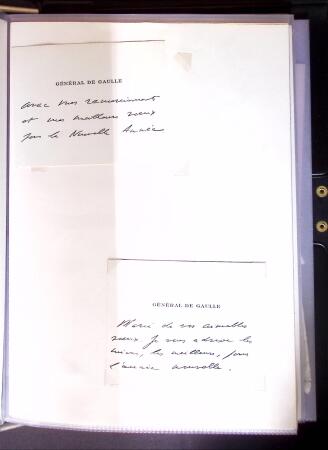 GÉNÉRAL DE GAULLE
avec mes remerciements
et mes meilleurs vœux
pour la Nouvelle Année
GÉNÉRAL DE GAULLE
Merci de vos aimables
vœux. Je vous adresse les
miens, les meilleurs, pour
l'année nouvelle.